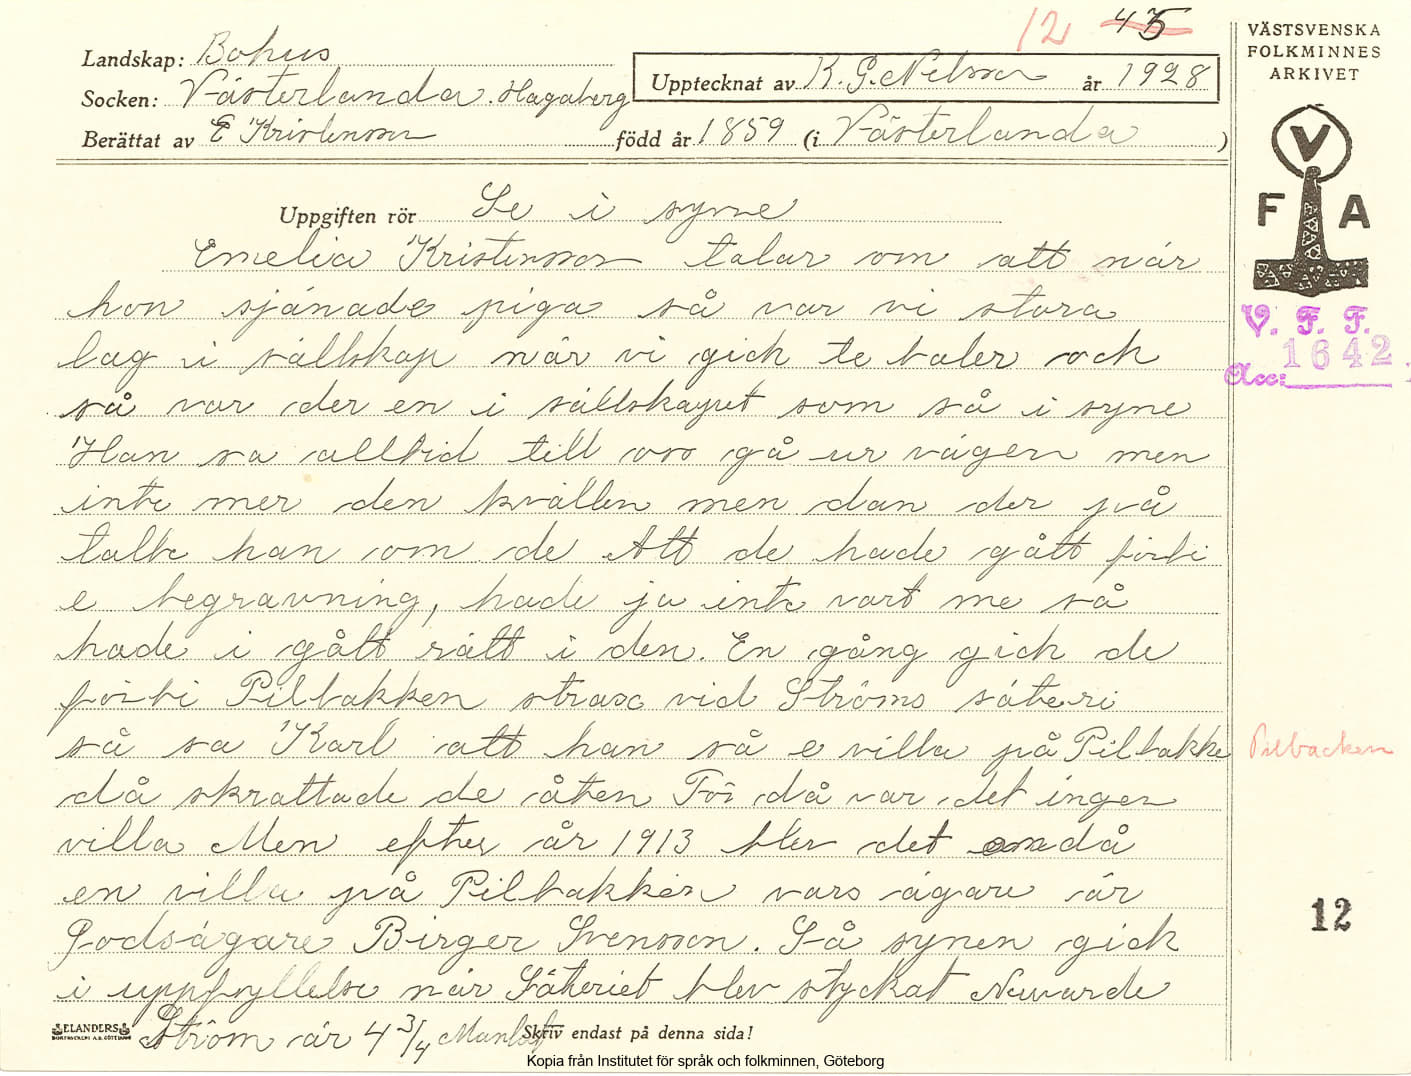 12 45
VÄSTSVENSKA
FOLKMINNES
ARKIVET
Landskap: Bohus
Upptecknat av K. G. Nelsson år 1928
Socken: Västerlanda. Hagaberg
Berättat av E Kristenson född år 1859 (i Västerlanda)
V
F A
Uppgiften rör Se i syne
Emelia Kristenson talar om att när
hon sjänade piga så var vi stora
lag i sällskap när vi gick te baler och
så var der en i sällskapet som så i syne
Han sa alltid till oss gå ur vägen men
inte mer den kvällen men dan der på
talte han om de Att de hade gått förbi
e begravning, hade ja inte vart me så
hade i gått rätt i den. En gång gick de
förbi Pilbakken strax vid Ströms säteri
så sa Karl att han så e villa på Pilbakke
då skrattade de åten För då var det ingen
villa Men efter år 1913 blev det ändå
en villa på Pilbakken vars ägare är
Godsägare Birger Svensson. Så synen gick
i uppfyllelse när Säteriet blev styckat Nuvarde
Ström är 4 3/4 Mantal
V. F. F.
Acc: 1642
Pilbacken
12
ELANDERS
BOKTRYCKERI A.B. GÖTEBORG
Skriv endast på denna sida!
Kopia från Institutet för språk och folkminnen, Göteborg